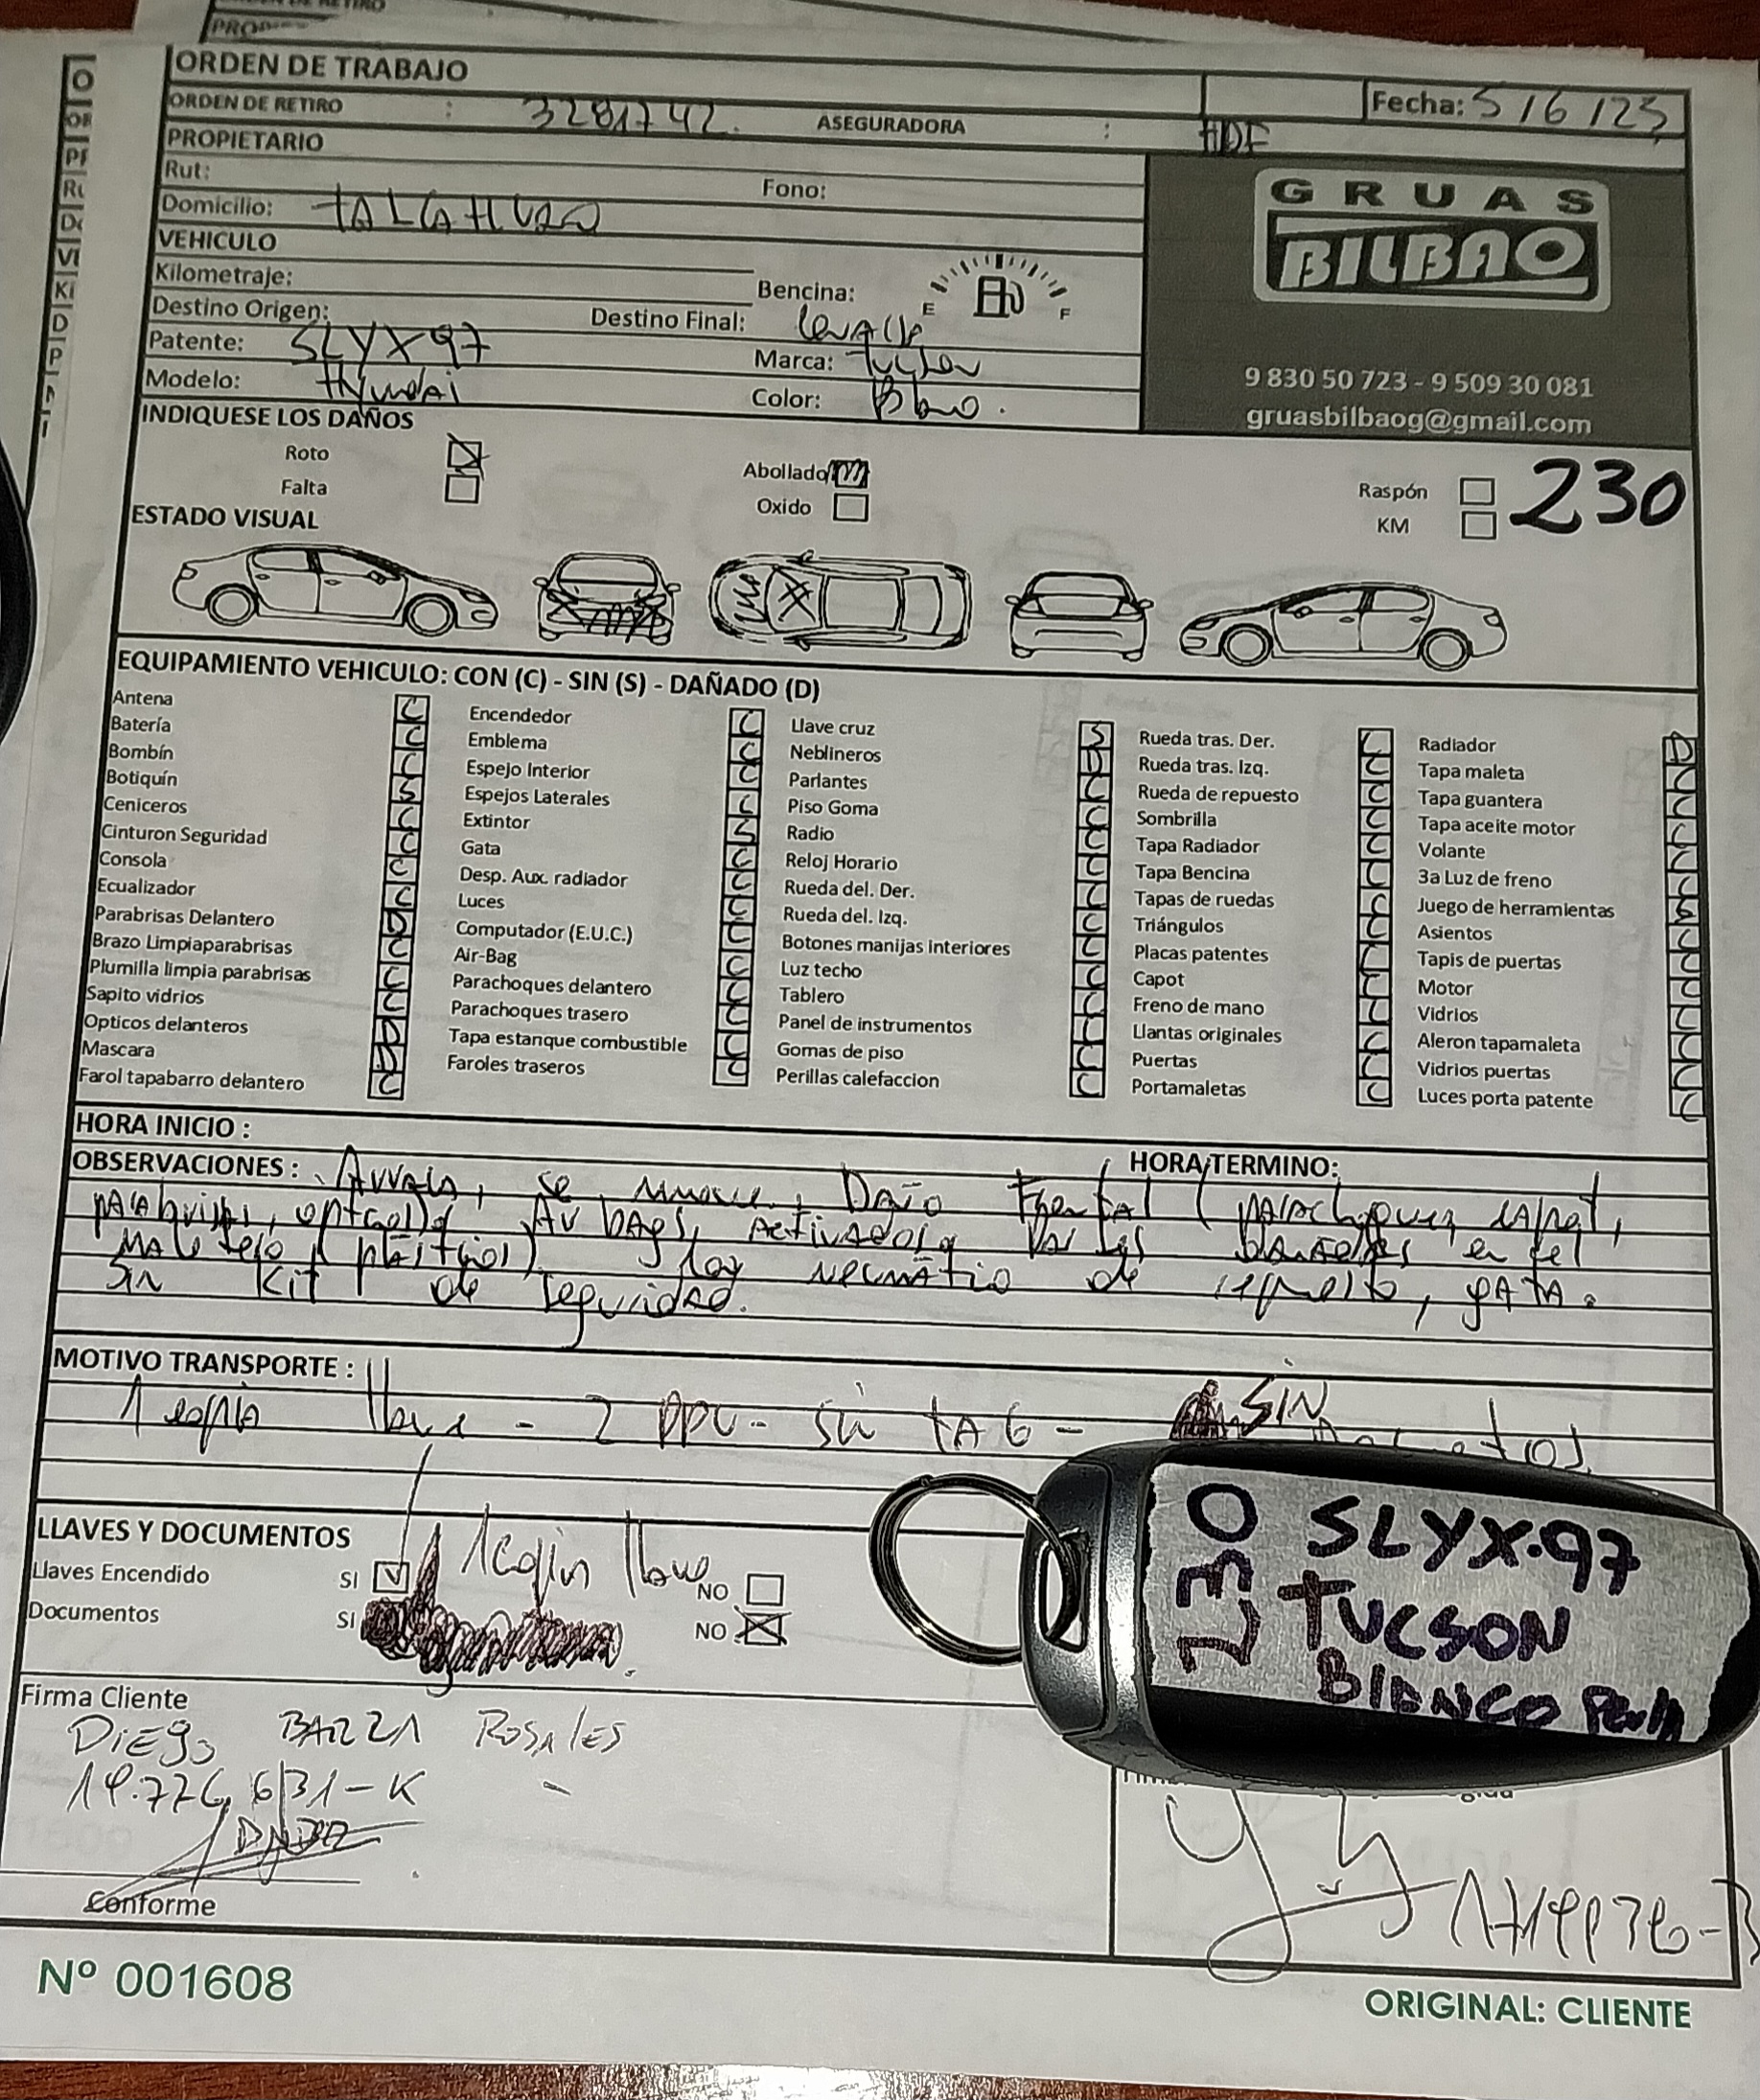 ORDEN DE RETIRO
ORDEN DE TRABAJO
Fecha: 5/6/25
ORDEN DE RETIRO : 3281742. ASEGURADORA : HDF
PROPIETARIO
Rut: Fono:
Domicilio: TALCAHUANO
VEHICULO
Kilometraje: Bencina: E F
Destino Origen: Destino Final:
Patente: SLYX97 Marca: Tucson
Modelo: Hyundai Color: Blanco.
GRUAS
BILBAO
9 830 50 723 - 9 509 30 081
gruasbilbaog@gmail.com
INDIQUESE LOS DAÑOS
Roto Abollado Raspón 230
Falta Oxido KM
ESTADO VISUAL
EQUIPAMIENTO VEHICULO: CON (C) - SIN (S) - DAÑADO (D)
Antena C Encendedor C Llave cruz S Rueda tras. Der. C Radiador D
Batería C Emblema C Neblineros D Rueda tras. Izq. C Tapa maleta C
Bombín C Espejo Interior C Parlantes C Rueda de repuesto C Tapa guantera C
Botiquín S Espejos Laterales C Piso Goma C Sombrilla C Tapa aceite motor C
Ceniceros C Extintor S Radio C Tapa Radiador C Volante C
Cinturon Seguridad C Gata C Reloj Horario C Tapa Bencina C 3a Luz de freno C
Consola C Desp. Aux. radiador C Rueda del. Der. C Tapas de ruedas C Juego de herramientas S
Ecualizador C Luces C Rueda del. Izq. C Triángulos C Asientos C
Parabrisas Delantero D Computador (E.U.C.) C Botones manijas interiores C Placas patentes C Tapis de puertas C
Brazo Limpiaparabrisas C Air-Bag C Luz techo C Capot C Motor C
Plumilla limpia parabrisas C Parachoques delantero C Tablero C Freno de mano C Vidrios C
Sapito vidrios C Parachoques trasero C Panel de instrumentos C Llantas originales C Aleron tapamaleta C
Opticos delanteros D Tapa estanque combustible C Gomas de piso C Puertas C Vidrios puertas C
Mascara D Faroles traseros C Perillas calefaccion C Portamaletas C Luces porta patente C
Farol tapabarro delantero C
HORA INICIO : HORA TERMINO:
OBSERVACIONES : Arranca, se mueve, Daño Frontal ( parachoques, capot,
parabrisas, opticos) Air bags, activados, en el
maletero (plásticos) hay neumático de repuesto, gata.
Sin Kit de seguridad.
MOTIVO TRANSPORTE :
1 copia llave - 2 PPU - sin TAG - SIN
LLAVES Y DOCUMENTOS
Llaves Encendido SI 1 copia llave NO
Documentos SI NO
Firma Cliente
DiEgo BARRA ROSALES
19.776.631-K
Conforme
Nº 001608
ORIGINAL: CLIENTE
230
SLYX·97
TUCSON
BLANCO Perla